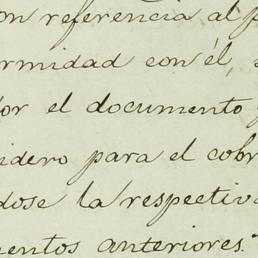 on referencia al p
ormidad con él, s
or el documento
idero para el cobr
dose la respectiva
entos anteriores."